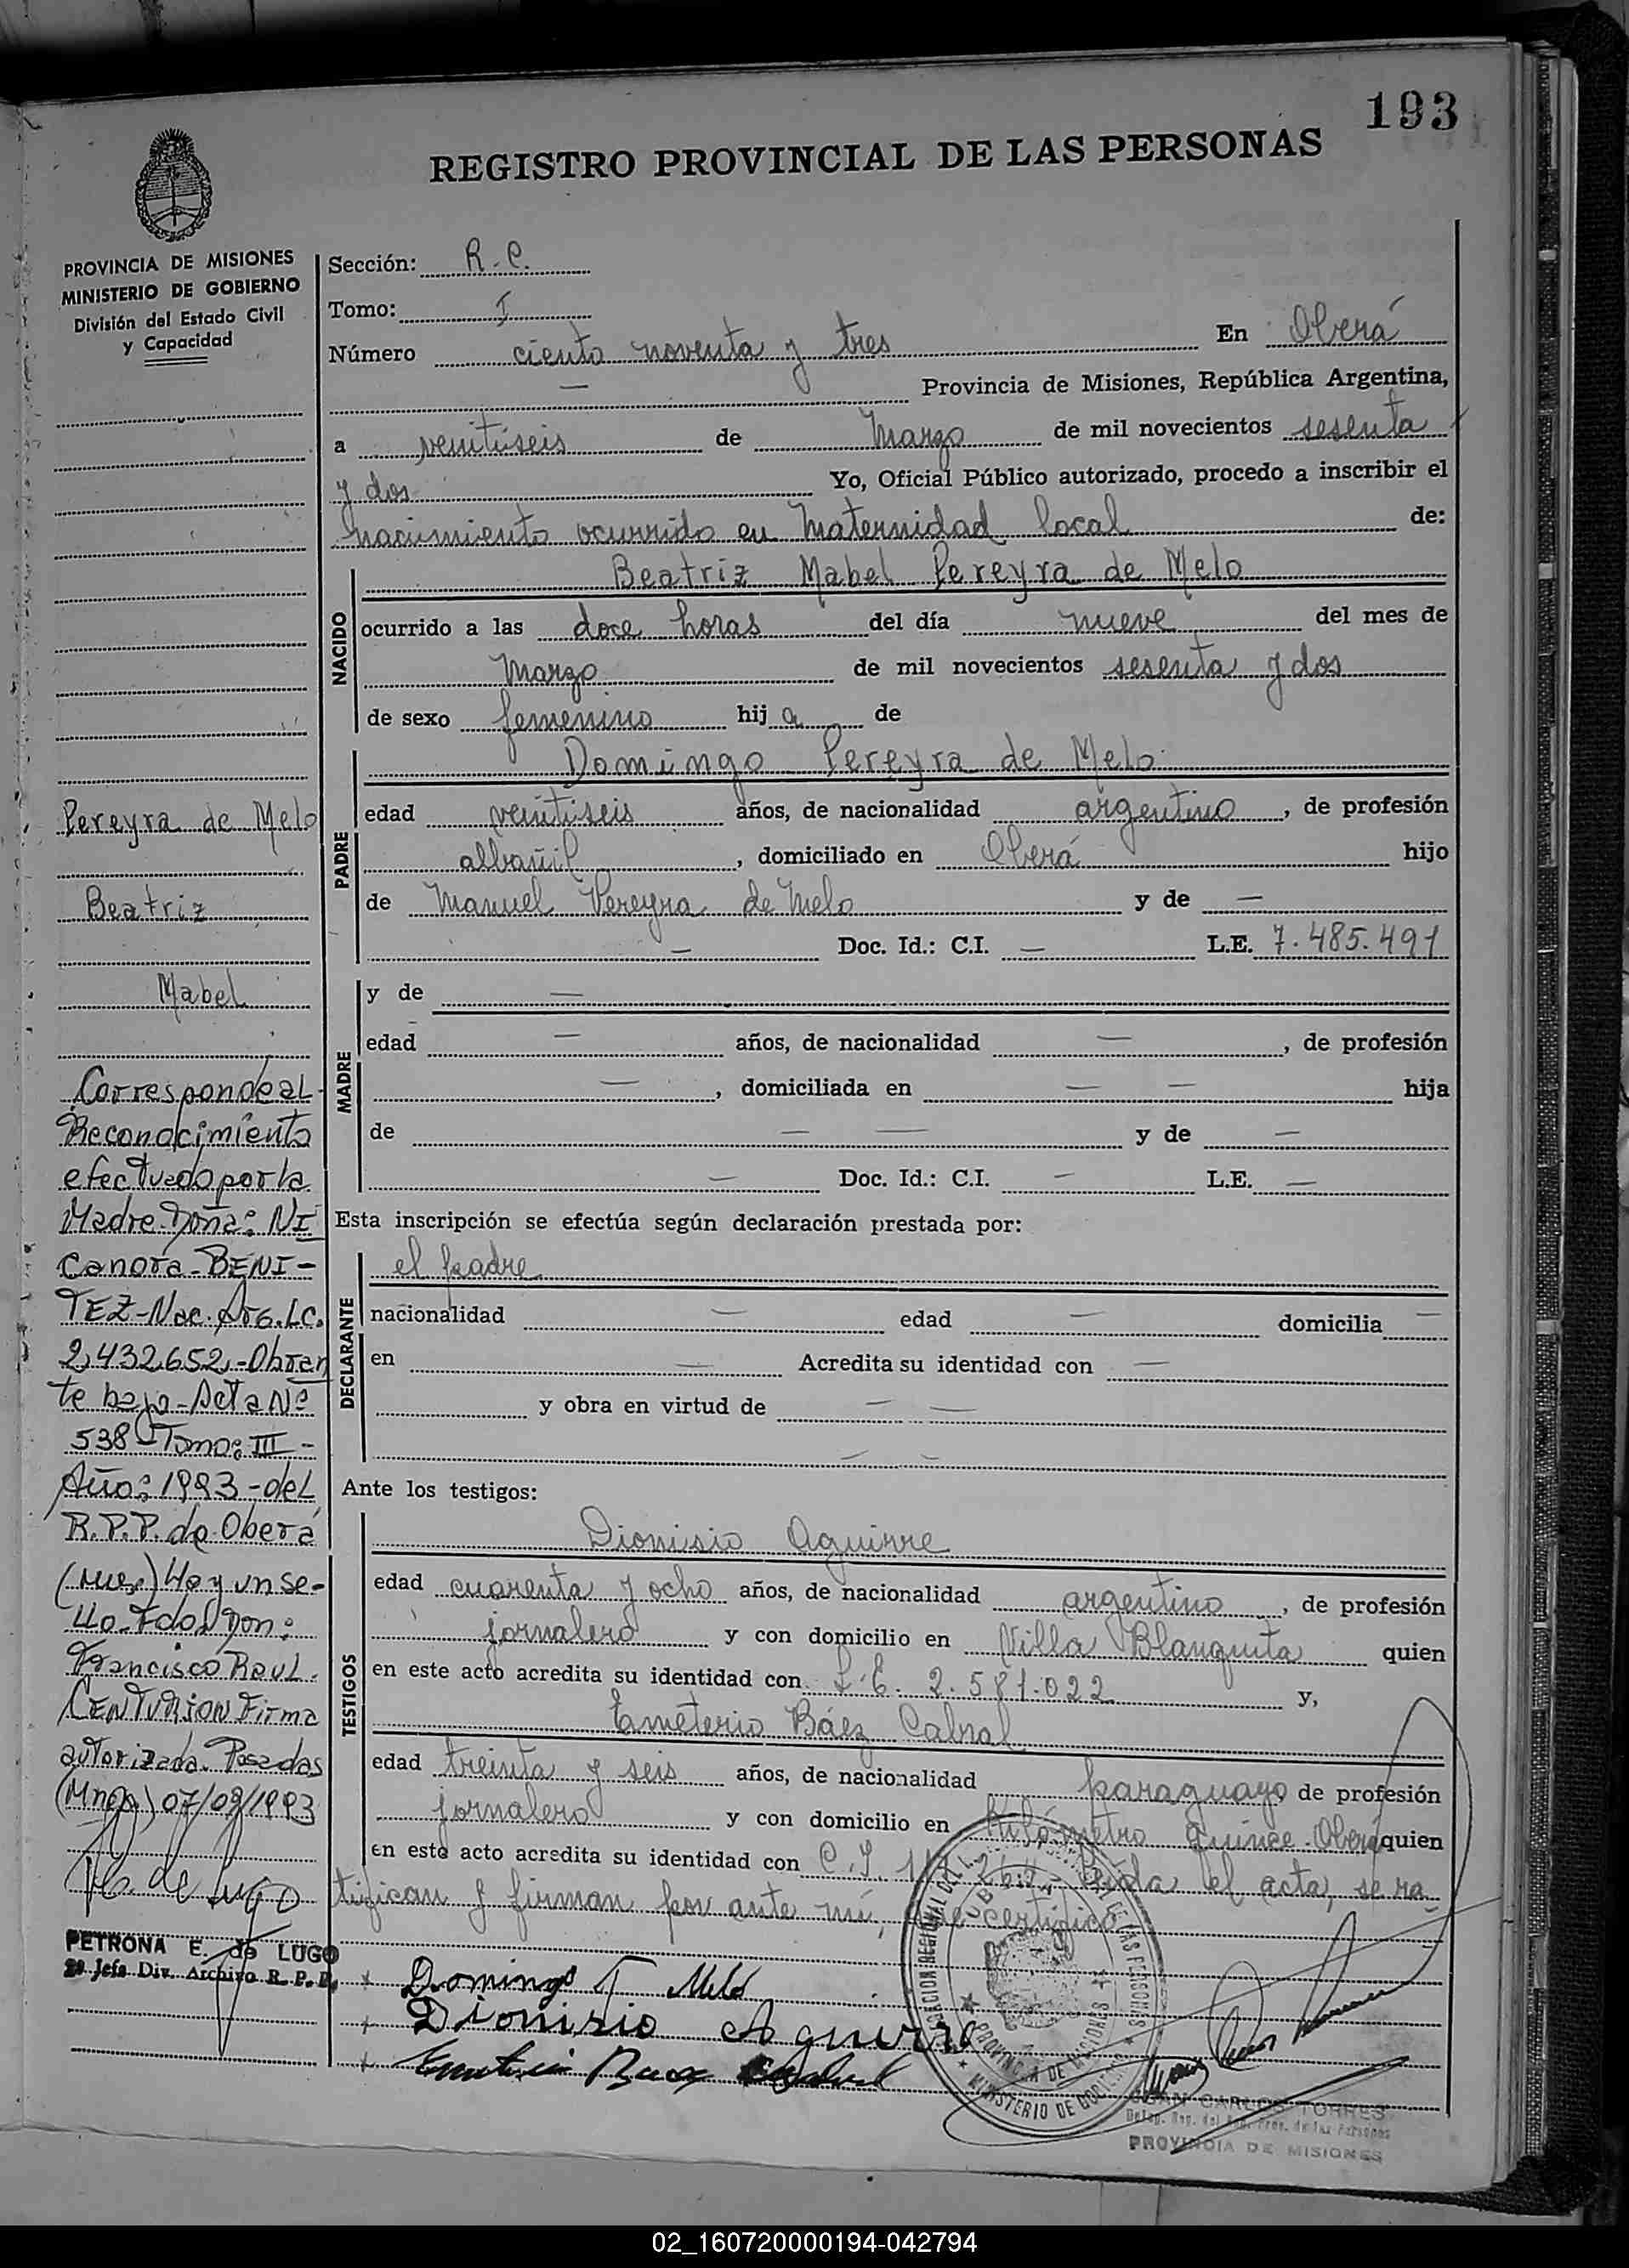 193
REGISTRO PROVINCIAL DE LAS PERSONAS
PROVINCIA DE MISIONES
MINISTERIO DE GOBIERNO
División del Estado Civil
y Capacidad
Sección: R.C.
Tomo: I
Número ciento noventa y tres En Oberá
— Provincia de Misiones, República Argentina,
a veintiseis de Marzo de mil novecientos sesenta
y dos Yo, Oficial Público autorizado, procedo a inscribir el
nacimiento ocurrido en Maternidad local de:
NACIDO
Beatriz Mabel Pereyra de Melo
ocurrido a las doce horas del día nueve del mes de
Marzo de mil novecientos sesenta y dos
de sexo femenino hija de
PADRE
Domingo Pereyra de Melo
edad veintiseis años, de nacionalidad argentino, de profesión
albañil, domiciliado en Oberá hijo
de Manuel Pereyra de Melo y de —
— Doc. Id.: C.I. — L.E. 7.485.491
MADRE
y de —
edad — años, de nacionalidad —, de profesión
—, domiciliada en — — hija
de — — y de —
— Doc. Id.: C.I. — L.E. —
Esta inscripción se efectúa según declaración prestada por:
DECLARANTE
el padre
nacionalidad — edad — domicilia —
en — Acredita su identidad con —
y obra en virtud de — —
— —
Ante los testigos:
TESTIGOS
Dionisio Aguirre
edad cuarenta y ocho años, de nacionalidad argentino, de profesión
jornalero y con domicilio en Villa Blanquita quien
en este acto acredita su identidad con L.E. 2.581.022 y,
Emeterio Báez Cabral
edad treinta y seis años, de nacionalidad paraguayo de profesión
jornalero y con domicilio en Kilómetro quince Oberá quien
en este acto acredita su identidad con C.I. Leída el acta, se ra
tifican y firman por ante mí, que certifico
Domingo Melo
Dionisio Aguirre
Baez Cabral
JUAN CARLOS TORRES
PROVINCIA DE MISIONES
DELEGACION REGIONAL DEL DE LAS PERSONAS
PROVINCIA DE MISIONES
MINISTERIO DE GOBIERNO
Pereyra de Melo
Beatriz
Mabel
Corresponde al
Reconocimiento
efectuado por la
Madre Doña: NI
canora-BENI-
TEZ-Nac. Arg. LC.
2,432652,-Obran
te bajo-Acta Nº
538-Tomo: III-
Año: 1993-del
R.P.P. de Oberá
(Mnes) Hay un se-
llo. Fdo. Don:
Francisco Raul.
CENTURION Firma
autorizada. Posadas
(Mnes) 07/09/1993
P.E. de Lugo
PETRONA E. de LUGO
2º Jefe Div. Archivo R. P. P.
02_160720000194-042794